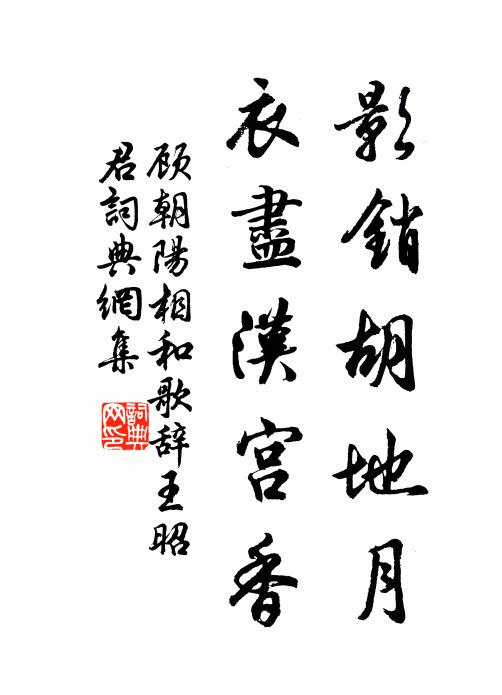 影銷胡地月
衣盡漢宮香
顾朝陽相和歌辞王昭
君詞典網集
詞典
网印